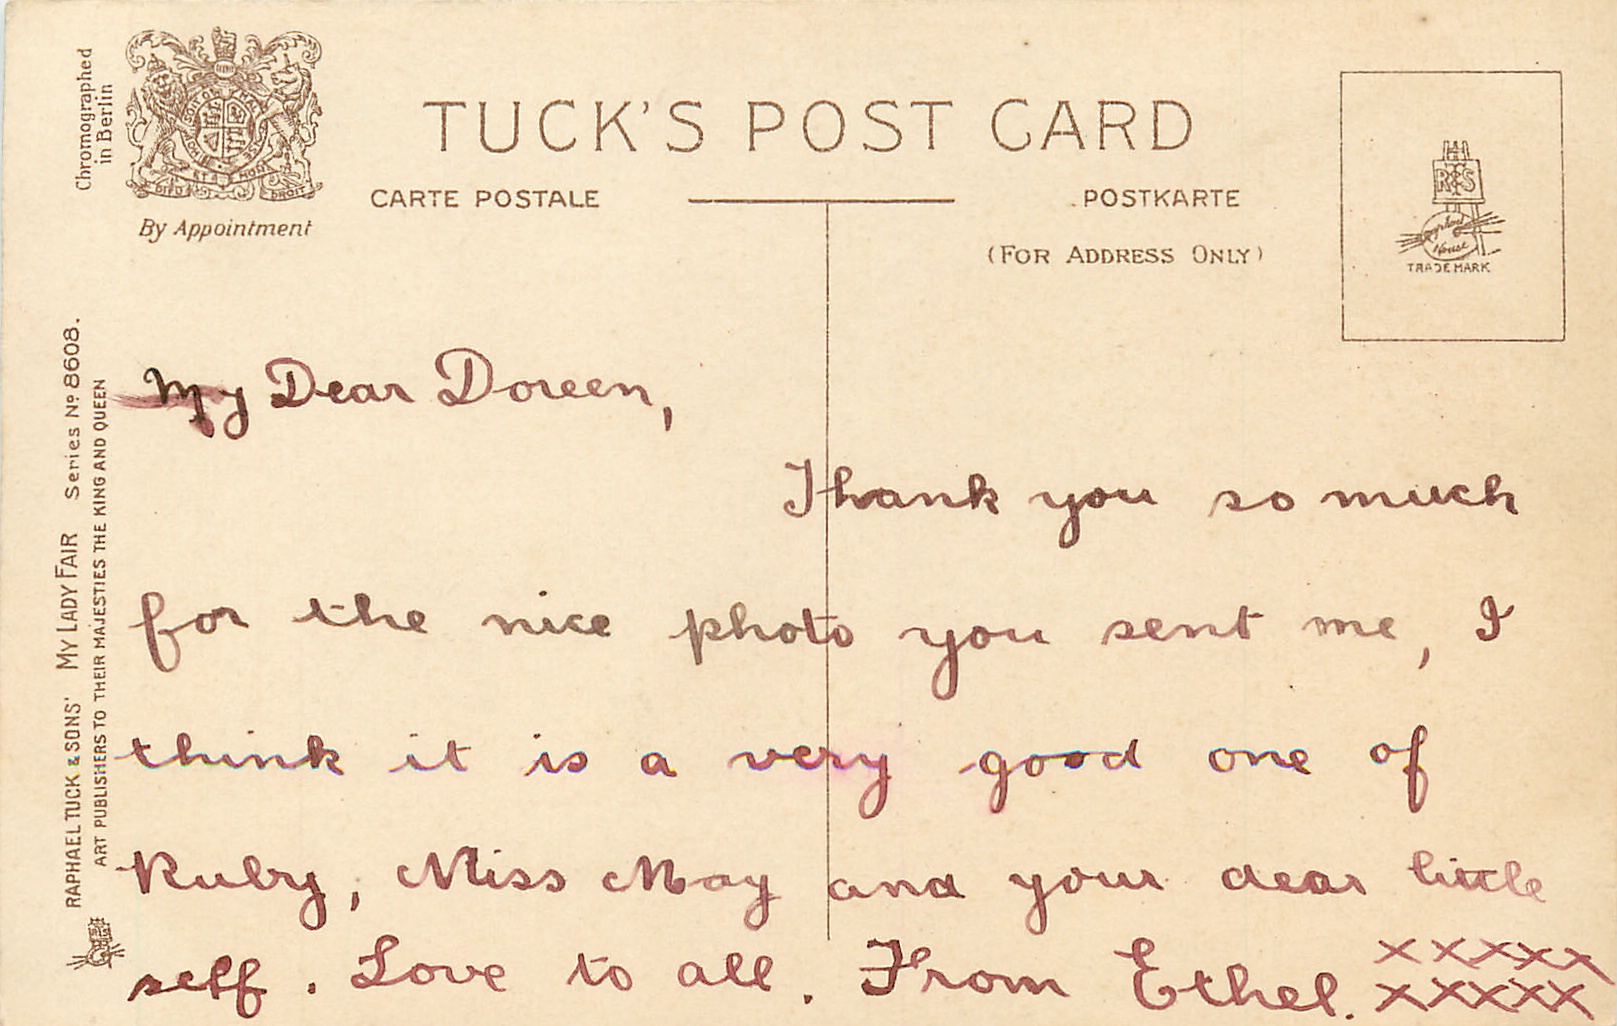 Chromographed
in Berlin
By Appointment
TUCK'S POST CARD
CARTE POSTALE
POSTKARTE
(FOR ADDRESS ONLY)
R & S
Raphael
House
TRADE MARK
RAPHAEL TUCK & SONS' MY LADY FAIR Series No 8608.
ART PUBLISHERS TO THEIR MAJESTIES THE KING AND QUEEN
My Dear Doreen,
Thank you so much
for the nice photo you sent me, I
think it is a very good one of
Ruby, Miss May and your dear little
self. Love to all. From Ethel. xxxxx
xxxxx